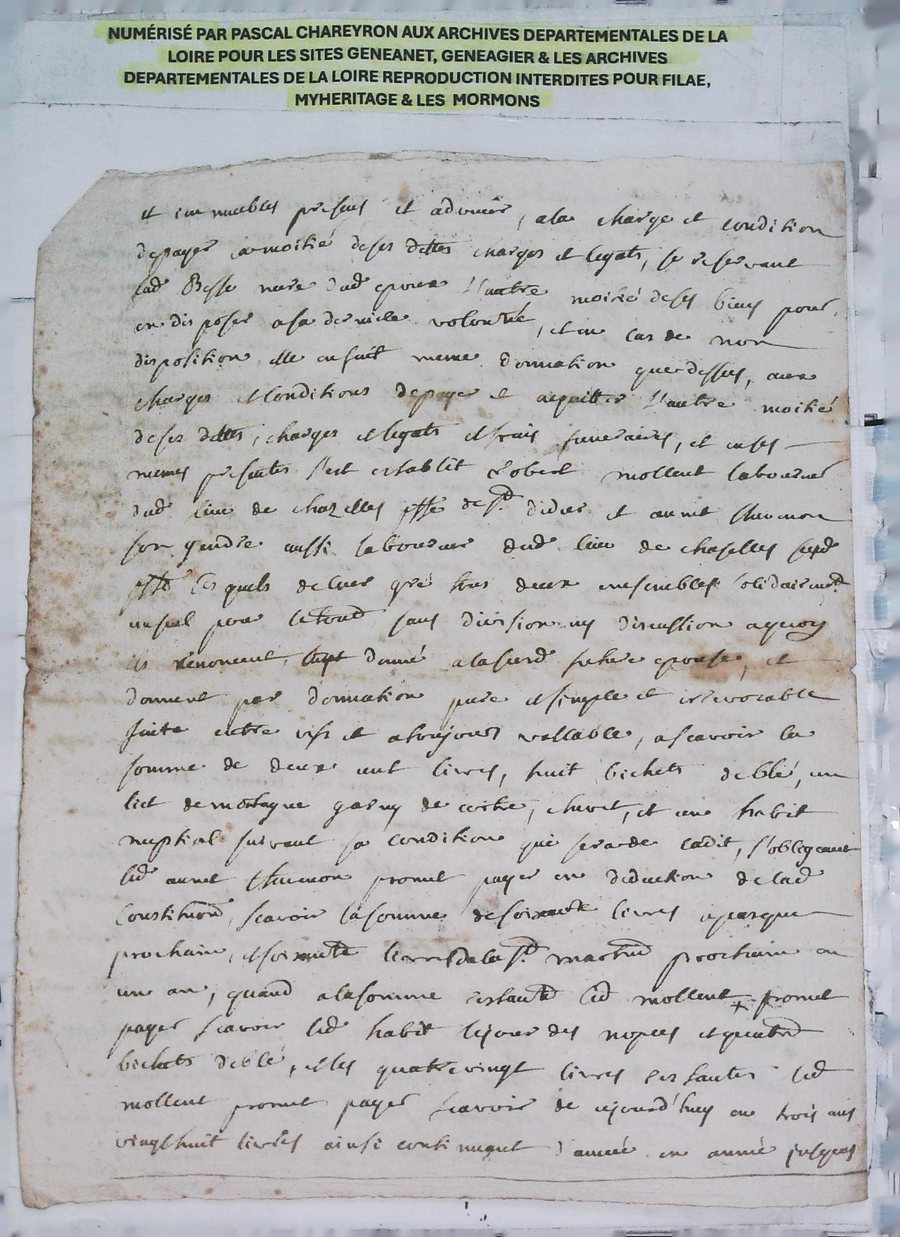 NUMÉRISÉ PAR PASCAL CHAREYRON AUX ARCHIVES DEPARTEMENTALES DE LA
LOIRE POUR LES SITES GENEANET, GENEAGIER & LES ARCHIVES
DEPARTEMENTALES DE LA LOIRE REPRODUCTION INTERDITES POUR FILAE,
MYHERITAGE & LES MORMONS
et immeubles presens et advenir, a la charge et condition
de payer la moitié de ses dettes charges et legats, se reservant
lad Besse mere dud epoux l'autre moitié de ses biens pour
en disposer a sa derniere volonté, et en cas de non
disposition elle en fait meme donnation que dessus, aux
charges et conditions de payer et acquitter l'autre moitié
de ses dettes, charges et legats et frais funeraires, et en ses
memes presentes s'est establit robert mollent laboureur
dud lieu de chazelles de st didier et annet
son gendre aussi laboureur dud lieu de chaselles
lesquels de leur gré tous deux ensembles solidairemt
un seul pour le tout sans division ny discussion a quoy
ils renoncent, donné a la future epouse, et
donnent par donnation pure et simple et irrevocable
faite entre vifs et a toujours vallable, a scavoir la
somme de deux cent livres, huit bichets de blé, un
lict de montagne garny de coitre, chevet, et un habit
nuptial suivant sa condition que sera de cadit, s'obligeant
led annet promet payer en deduction de lad
constitution, scavoir la somme de soixante livres a pasques
prochain, et soixante livres de la st martin prochaine en
un an, quand a la somme restante led mollent promet
payer scavoir led habit le jour des nopces et quatre
bichets de blé, et les quatre vingt livres restantes led
mollent promet payer scavoir de ajourd'huy en trois ans
vingt huit livres ainsi continuant d'année en année jusques